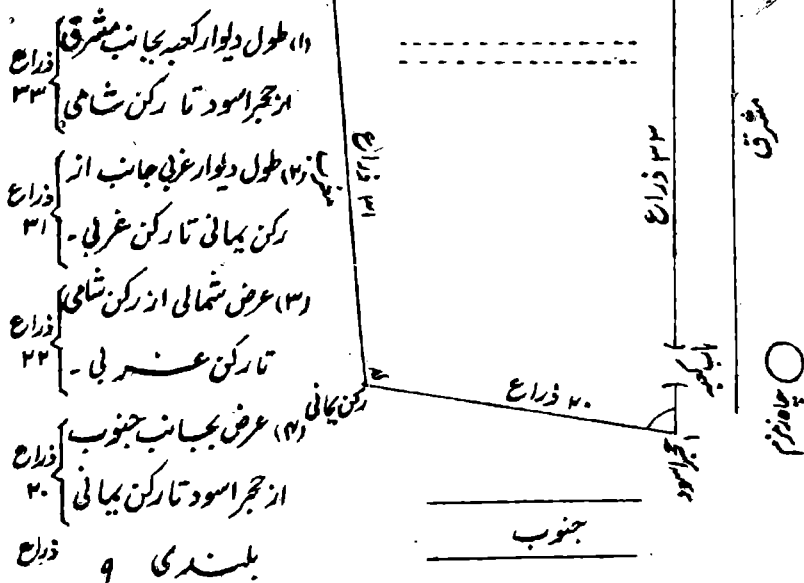 (۱) طول دیوار کعبہ بجانب مشرق
از حجر اسود تا رکن شامی
ذراع
۳۳
(۲) طول دیوار غربی جانب از
رکن یمانی تا رکن غربی ۔
ذراع
۳۱
(۳) عرض شمالی از رکن شامی
تا رکن غربی ۔
ذراع
۲۲
(۴) عرض بجانب جنوب
از حجر اسود تا رکن یمانی
ذراع
۲۰
بلندی ۹ ذراع
مغرب
۳۱ ذراع
رکن یمانی
۲۰ ذراع
۳۳ ذراع
باب کعبہ
حجر اسود
مشرق
چاہ زمزم
جنوب